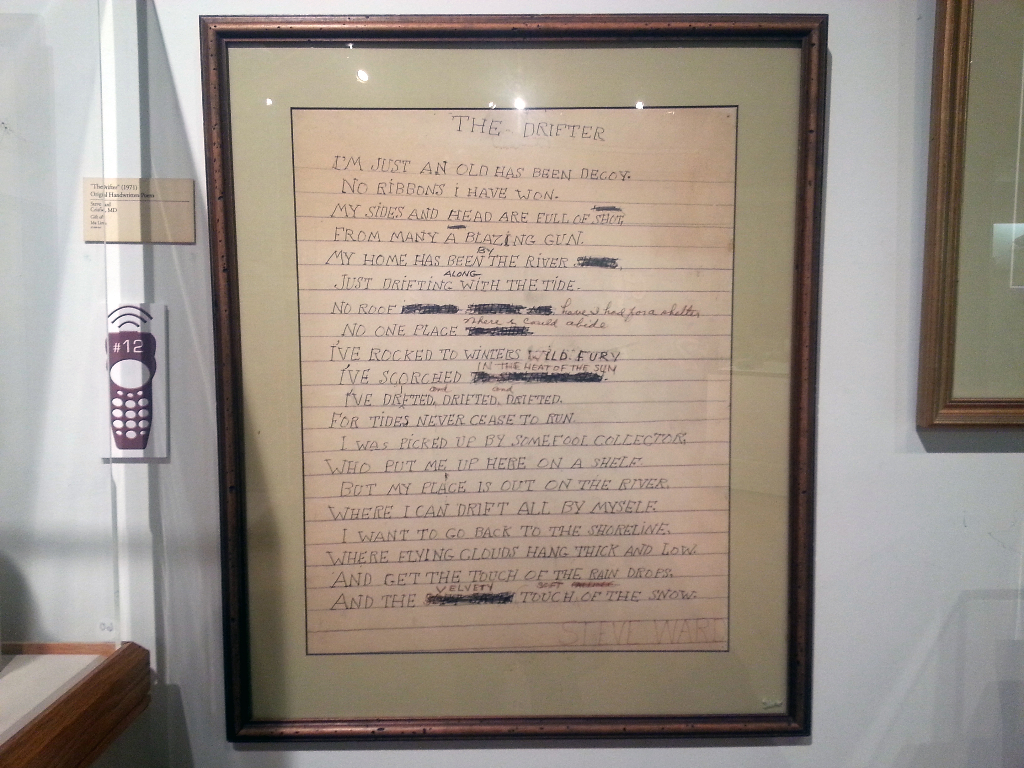 THE DRIFTER
I'M JUST AN OLD HAS BEEN DECOY.
NO RIBBONS I HAVE WON.
MY SIDES AND HEAD ARE FULL OF SHOT,
FROM MANY A BLAZING GUN.
MY HOME HAS BEEN BY THE RIVER
JUST DRIFTING ALONG WITH THE TIDE.
NO ROOF have I had for a shelter
NO ONE PLACE where I could abide
I'VE ROCKED TO WINTERS WILD FURY
I'VE SCORCHED IN THE HEAT OF THE SUN
I'VE DRIFTED, and DRIFTED, and DRIFTED.
FOR TIDES NEVER CEASE TO RUN.
I WAS PICKED UP BY SOMEFOOL COLLECTOR,
WHO PUT ME UP HERE ON A SHELF.
BUT MY PLACE IS OUT ON THE RIVER,
WHERE I CAN DRIFT ALL BY MYSELF.
I WANT TO GO BACK TO THE SHORELINE,
WHERE FLYING CLOUDS HANG THICK AND LOW.
AND GET THE TOUCH OF THE RAIN DROPS,
AND THE VELVETY SOFT TOUCH OF THE SNOW.
STEVE WARD
(1971)
Handwritten
MD
Gift of
#12